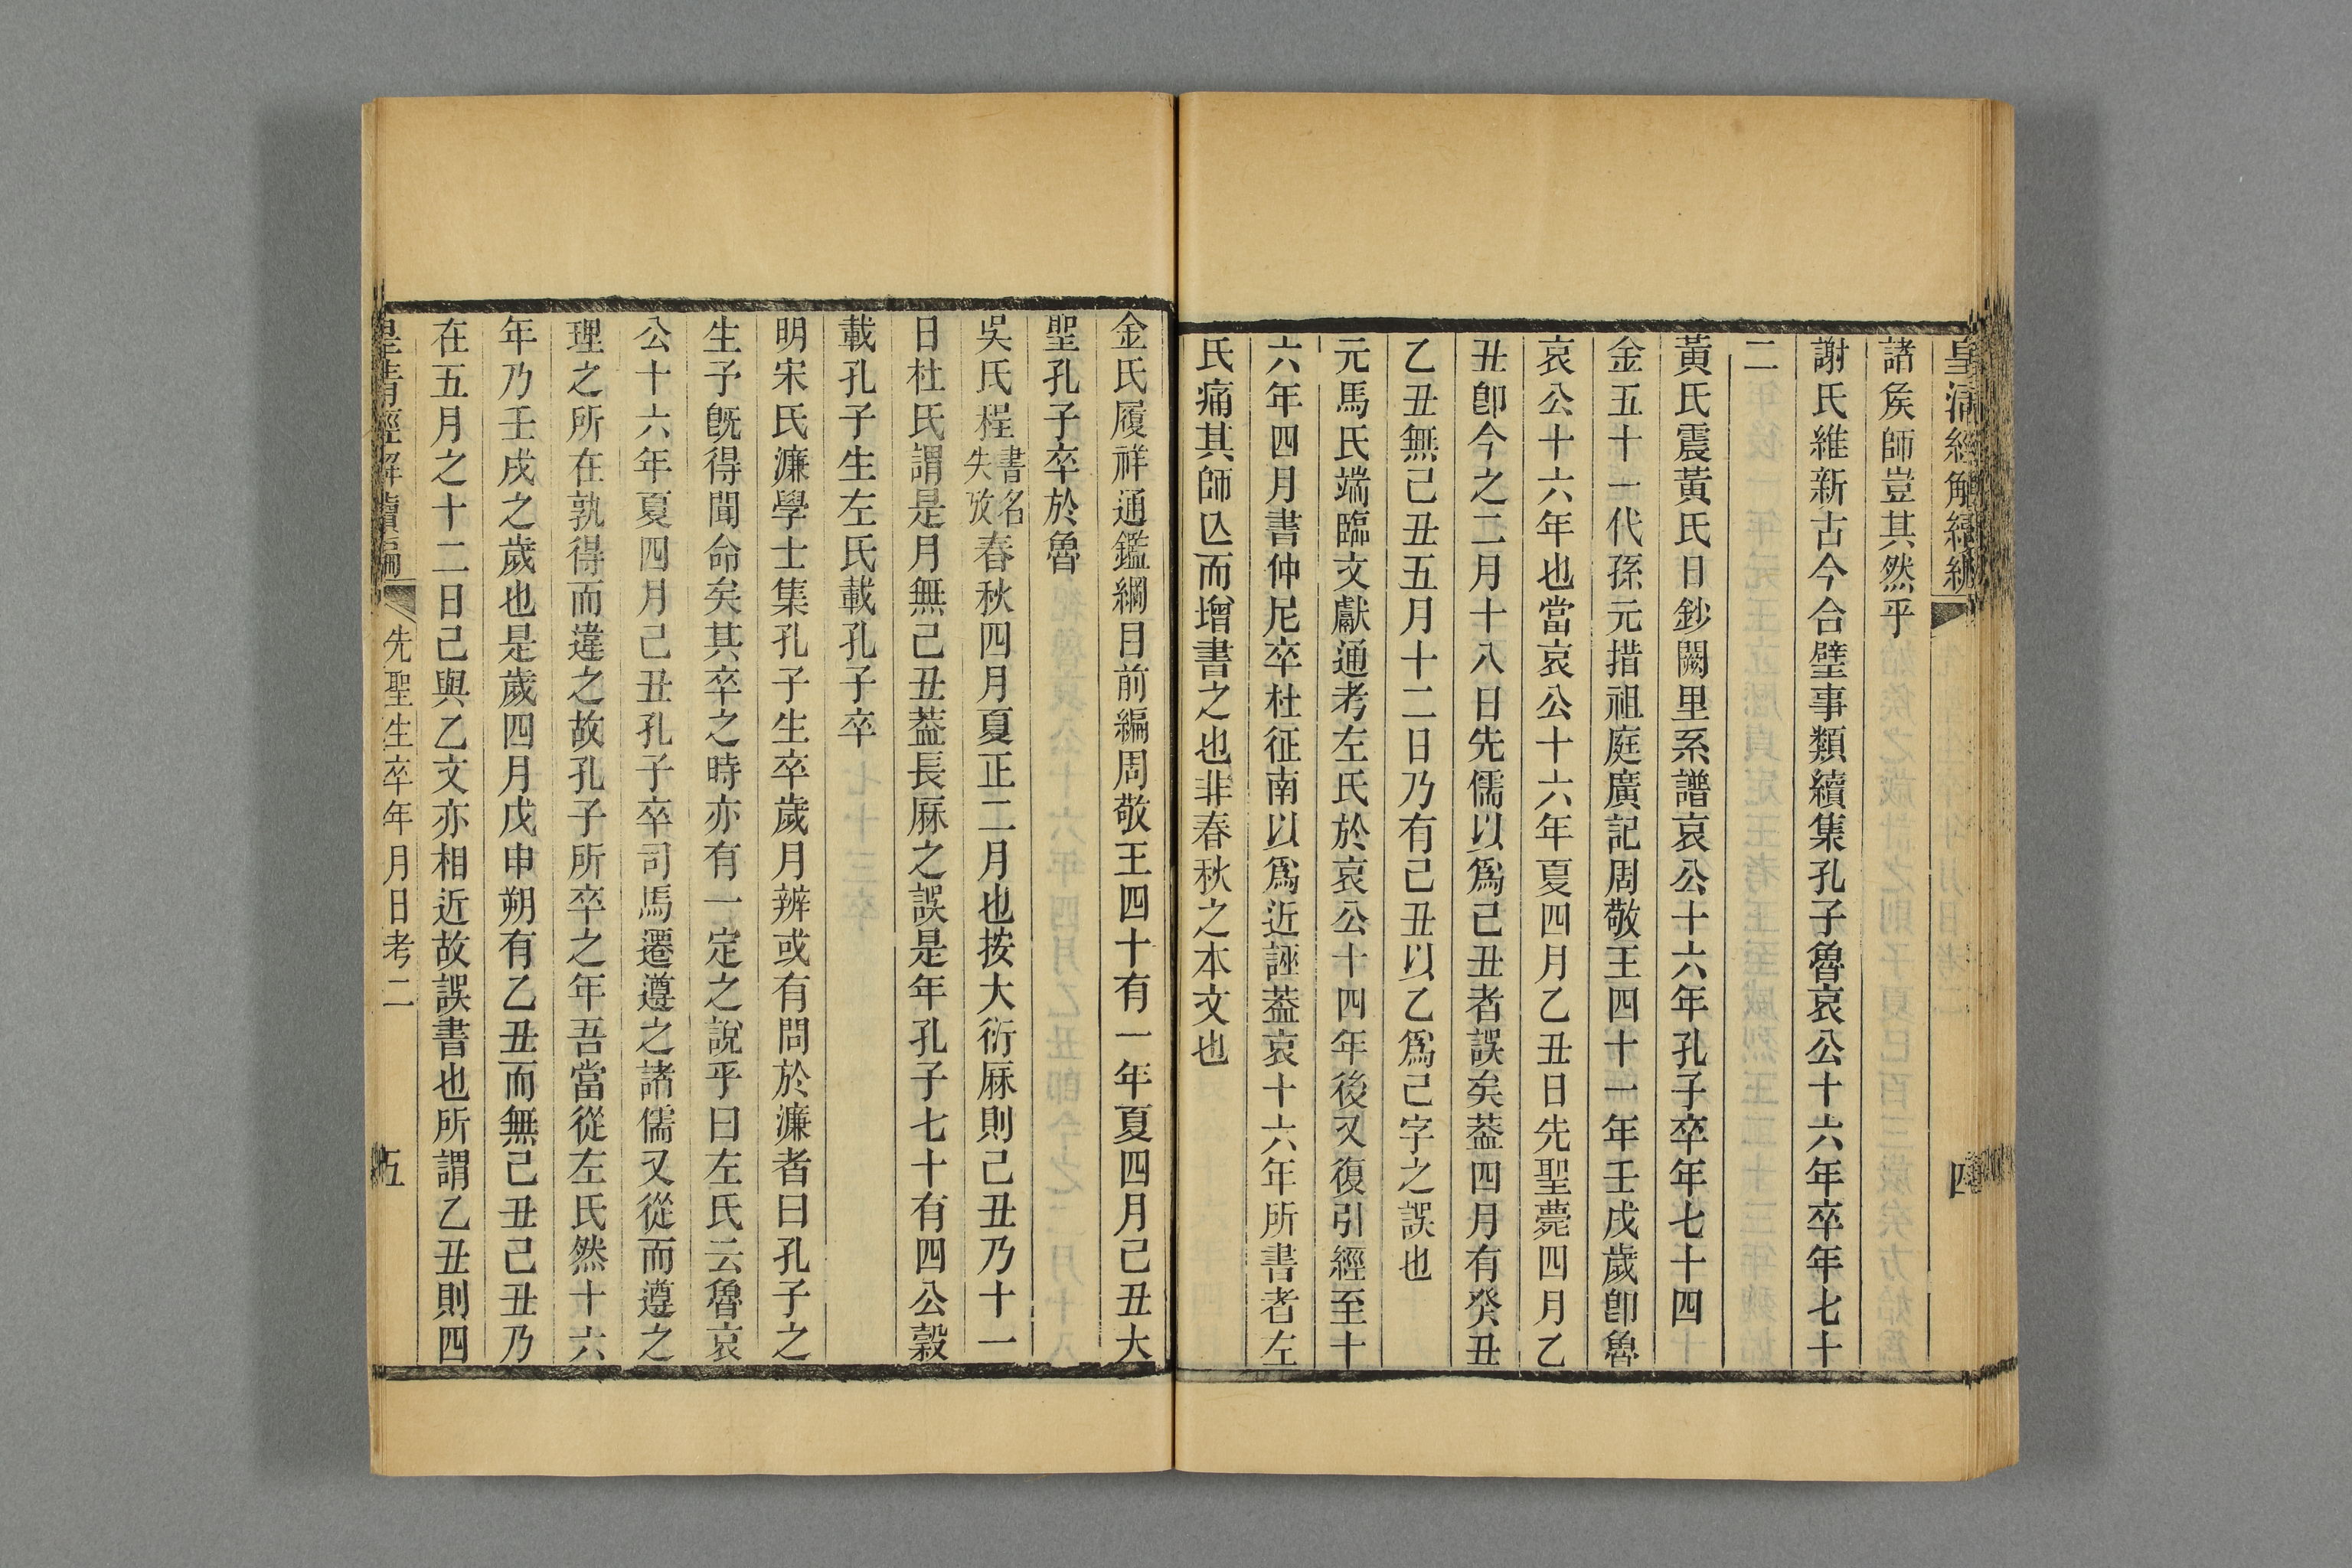 皇清經解續編
四
諸矦師豈其然乎
謝氏維新古今合璧事類續集孔子魯哀公十六年卒年七十
二
黃氏震黃氏日鈔闕里系譜哀公十六年孔子卒年七十四
金五十一代孫元措祖庭廣記周敬王四十一年壬戌歲卽魯
哀公十六年也當哀公十六年夏四月乙丑日先聖薨四月乙
丑卽今之二月十八日先儒以爲己丑者誤矣葢四月有癸丑
乙丑無己丑五月十二日乃有己丑以乙爲己字之誤也
元馬氏端臨文獻通考左氏於哀公十四年後又復引經至十
六年四月書仲尼卒杜征南以爲近誣葢哀十六年所書者左
氏痛其師亾而增書之也非春秋之本文也
金氏履祥通鑑綱目前編周敬王四十有一年夏四月己丑大
聖孔子卒於魯
吳氏程書名失攷春秋四月夏正二月也按大衍厤則己丑乃十一
日杜氏謂是月無己丑葢長厤之誤是年孔子七十有四公穀
載孔子生左氏載孔子卒
明宋氏濂學士集孔子生卒歲月辨或有問於濂者曰孔子之
生予旣得聞命矣其卒之時亦有一定之說乎曰左氏云魯哀
公十六年夏四月己丑孔子卒司馬遷遵之諸儒又從而遵之
理之所在孰得而違之故孔子所卒之年吾當從左氏然十六
年乃壬戌之歲也是歲四月戊申朔有乙丑而無己丑己丑乃
在五月之十二日己與乙文亦相近故誤書也所謂乙丑則四
皇清經解續編
先聖生卒年月日考二
五